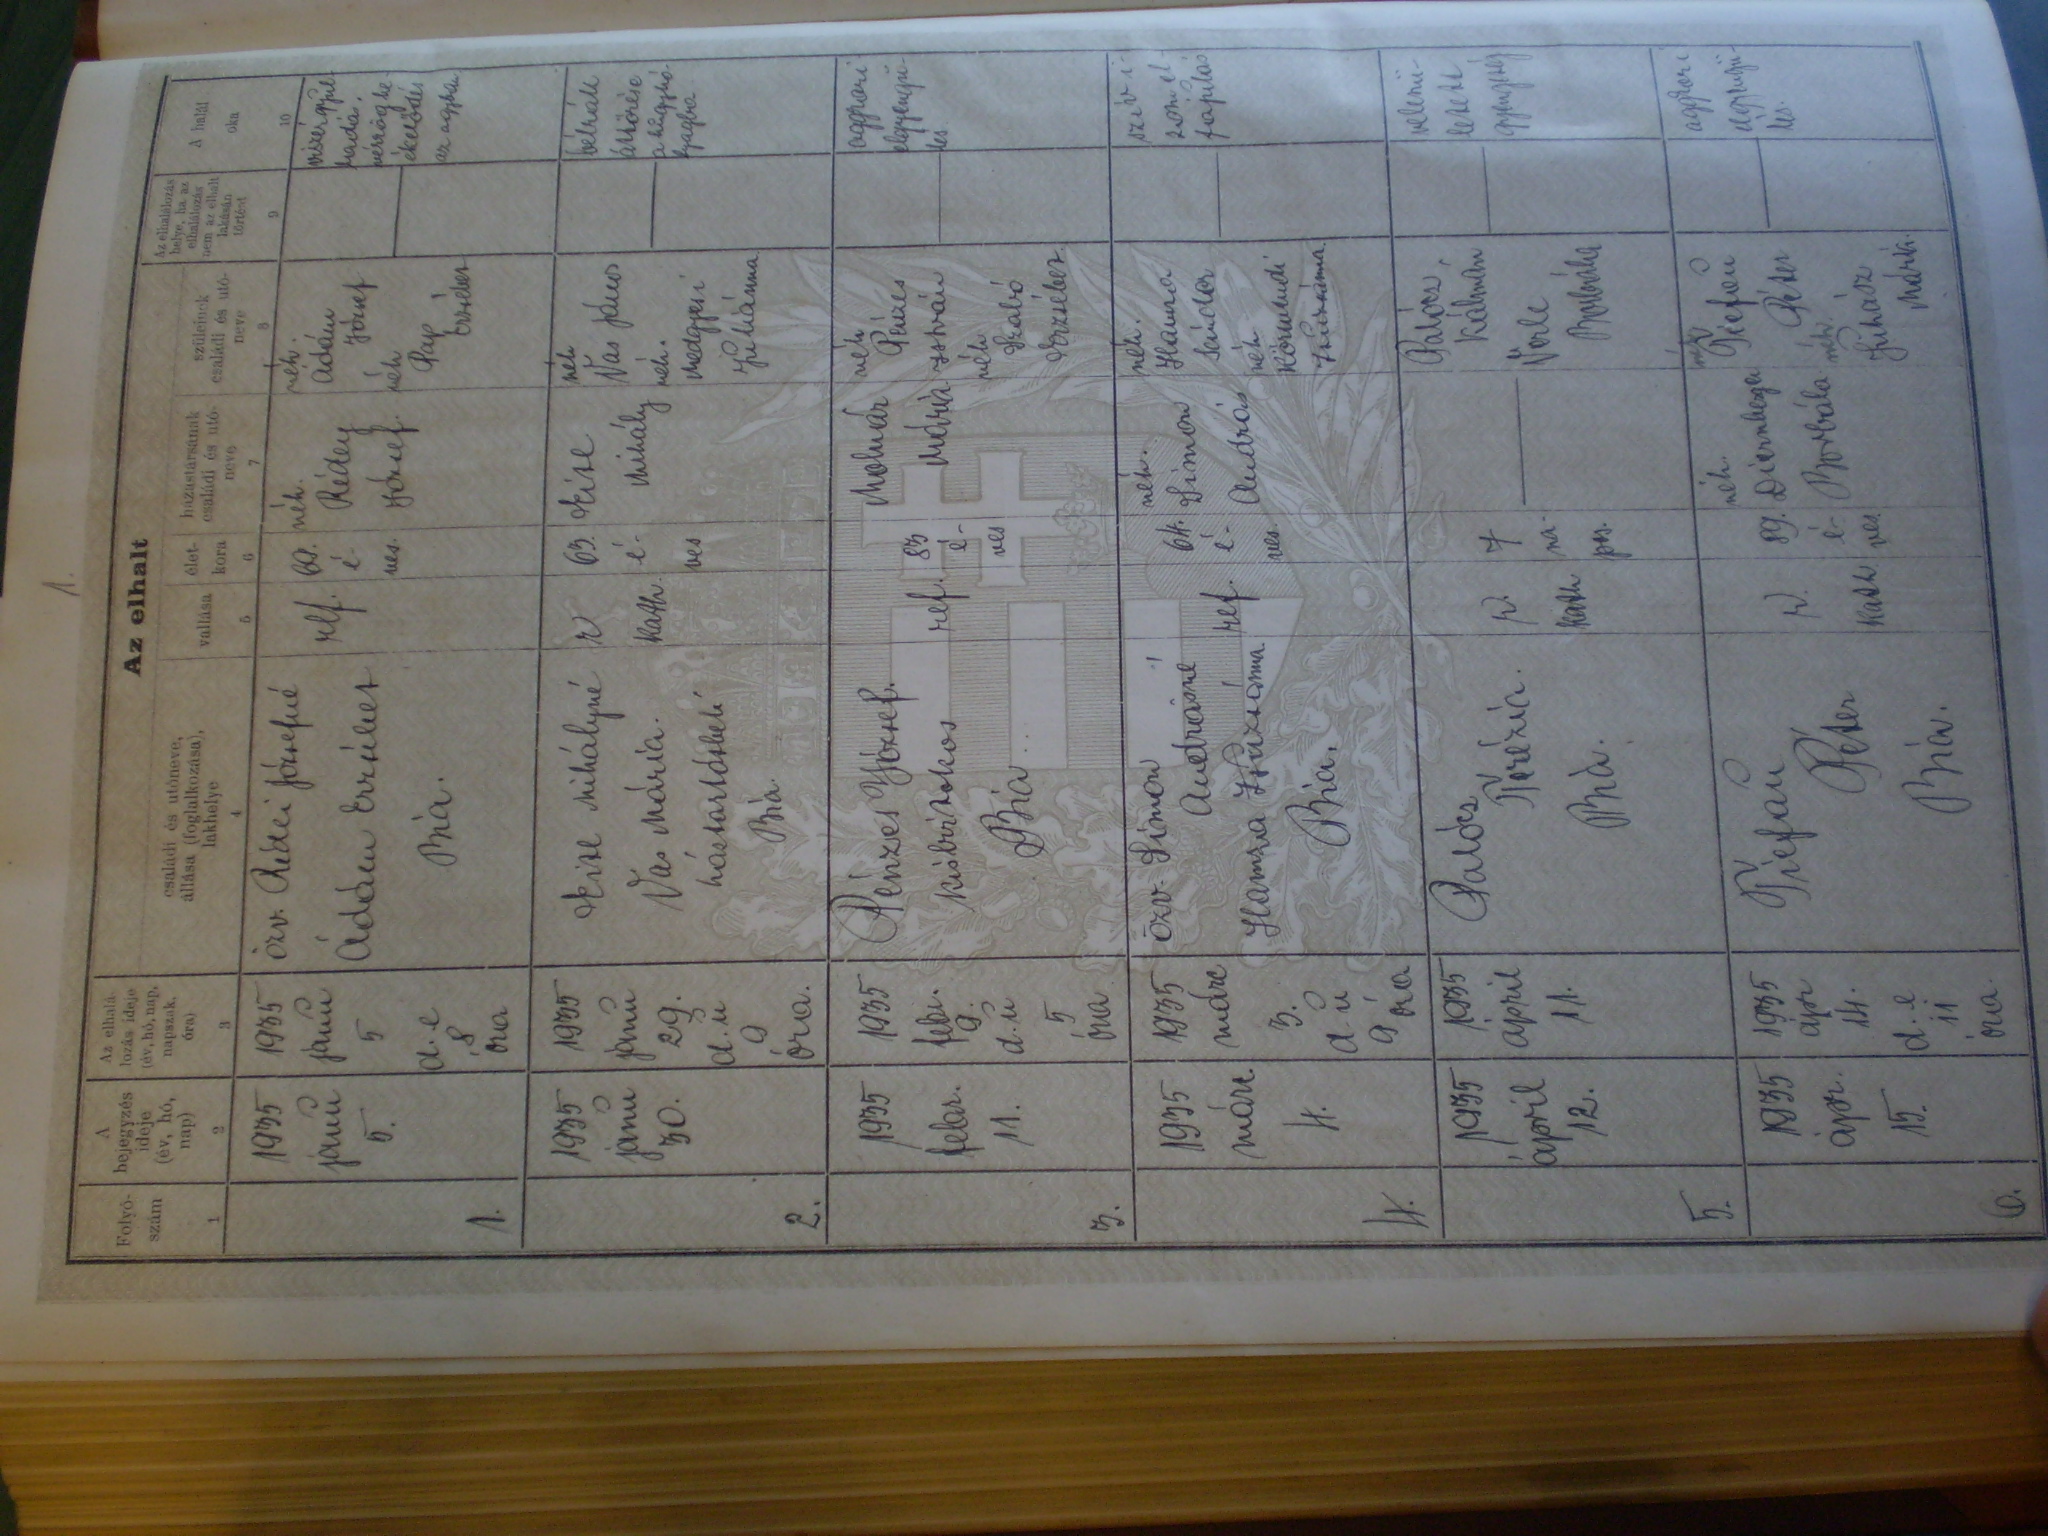 1.
Az elhalt
Folyó-
szám
A
bejegyzés
ideje
(év, hó,
nap)
Az elhalá-
lozás ideje
(év, hó, nap,
napszak,
óra)
családi és utóneve,
állása (foglalkozása),
lakhelye
vallása
élet-
kora
házastársának
családi és utó-
neve
szüleinek
családi és utó-
neve
Az elhalálozás
helye, ha az
elhalálozás
nem az elhalt
lakásán
történt
A halál
oka
1
2
3
4
5
6
7
8
9
10
1.
1935
janu
5.
1935
janu
5
d. e
8
óra
özv. Rédei Józsefné
Ádám Erzsébet
Bia.
ref.
60.
é-
ves.
néh.
Rédey
József.
néh.
Ádám
József
néh
Pap
Erzsébet
az agyban
2.
1935
janu
30.
1935
janu
29.
d. u
9
óra.
Kiss Mihályné
Vas Mária.
háztartásbeli
Bia.
r
kath.
63.
é-
ves
Kiss
Mihály
néh
Vas János
néh.
Medgyesi
Juliánna
bélrák
áttörése
3.
1935
febr.
11.
1935
febr.
9.
d. u
5
óra
Pénzes József.
kisbirtokos
Bia
ref.
83
é-
ves
Molnár
Mária
néh
Pénzes
István
néh
Szabó
Erzsébet
aggkori
elgyengü-
lés.
4.
1935
márc.
4.
1935
márc
3.
d u
9 óra
özv. Simon
Andrásné
Hamza Zsuzsánna
Bia.
ref.
64.
é-
ves.
néh.
Simon
András
néh.
Hamza
Sándor
néh
Körmendi
Zsuzsánna
szív i-
zom el
fajulás
5.
1935
április
12.
1935
április
11.
Palócz
Terézia.
Bia.
r.
kath
7
na-
pos.
Palócz,
Kálmán
Borbála
veleszü-
letett
gyengeség
6.
1935
ápr.
15.
1935
ápr
14.
d. e
11
óra.
Tiefau
Péter
Bia.
r.
kath
89.
é-
ves.
néh.
Borbála
Tiefau
Péter
néh.
Juhász
Mária.
aggkori
elgyengü-
lés.